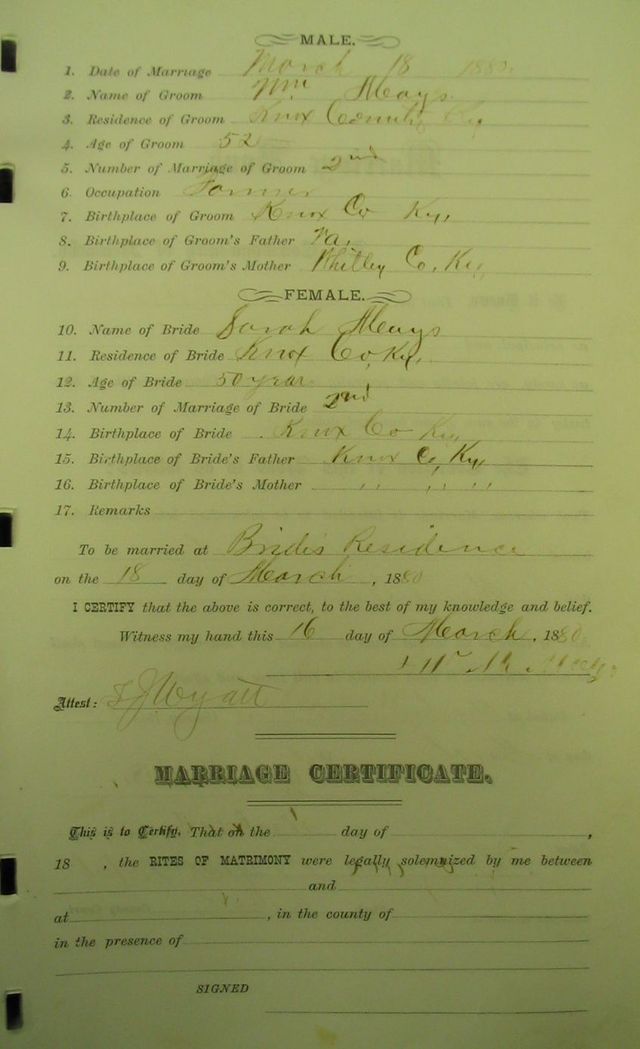 MALE.
1. Date of Marriage March 18 1880.
2. Name of Groom Wm Mays
3. Residence of Groom Knox County Ky
4. Age of Groom 52
5. Number of Marriage of Groom 2nd
6. Occupation Farmer
7. Birthplace of Groom Knox Co Ky,
8. Birthplace of Groom's Father Va,
9. Birthplace of Groom's Mother Whitley Co, Ky,
FEMALE.
10. Name of Bride Sarah Mays
11. Residence of Bride Knox Co, Ky,
12. Age of Bride 50 year
13. Number of Marriage of Bride 2nd
14. Birthplace of Bride Knox Co Ky,
15. Birthplace of Bride's Father Knox Co, Ky,
16. Birthplace of Bride's Mother " " "
17. Remarks
To be married at Bride's Residence
on the 18 day of March, 1880
I CERTIFY that the above is correct, to the best of my knowledge and belief.
Witness my hand this 16 day of March, 1880
Attest: Wyatt
MARRIAGE CERTIFICATE.
This is to Certify, That on the day of ,
18 , the RITES OF MATRIMONY were legally solemnized by me between
and
at , in the county of
in the presence of
SIGNED